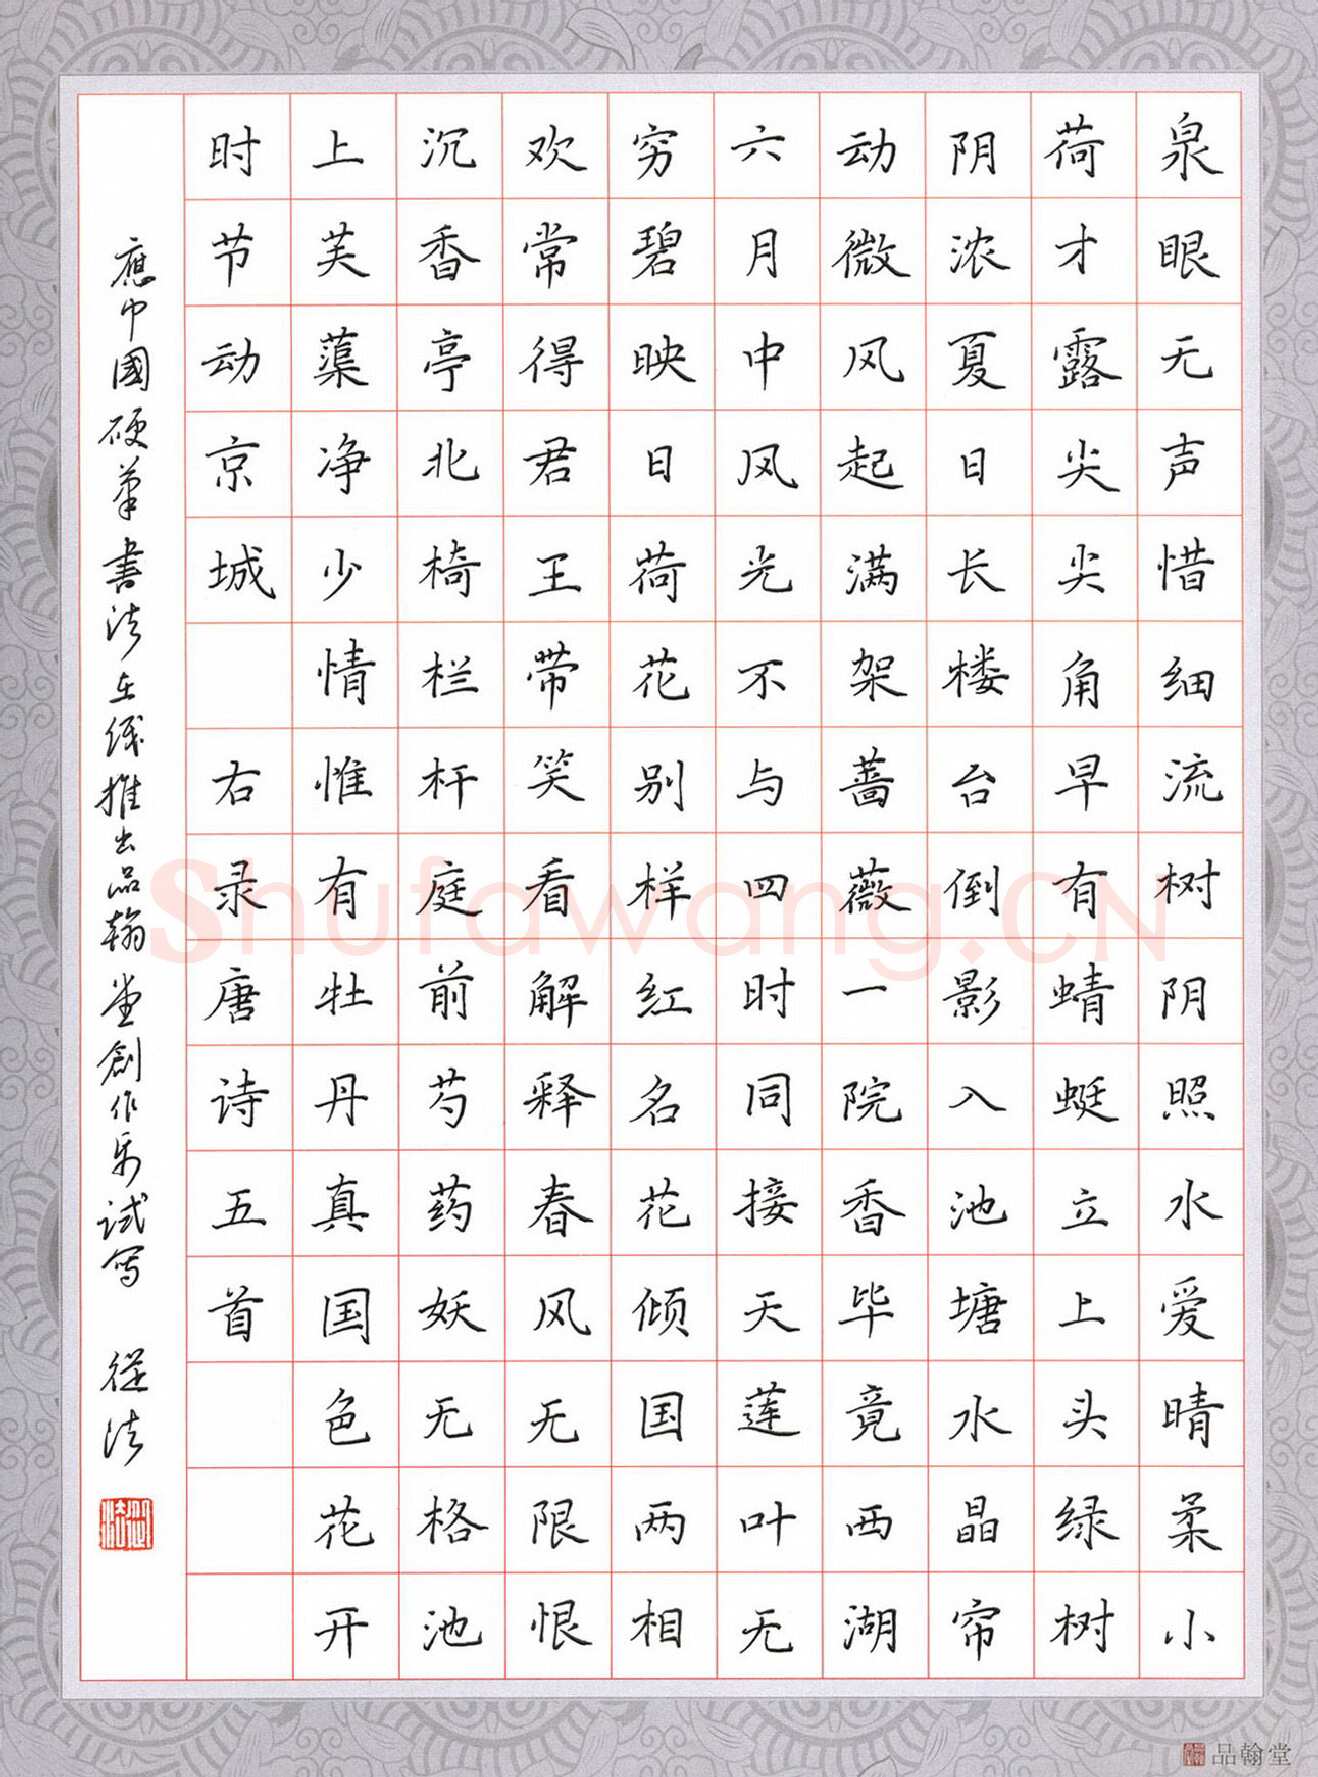 泉眼无声惜细流树阴照水爱晴柔小
荷才露尖尖角早有蜻蜓立上头绿树
阴浓夏日长楼台倒影入池塘水晶帘
动微风起满架蔷薇一院香毕竟西湖
六月中风光不与四时同接天莲叶无
穷碧映日荷花别样红名花倾国两相
欢常得君王带笑看解释春风无限恨
沉香亭北椅栏杆庭前芍药妖无格池
上芙蕖净少情惟有牡丹真国色花开
时节动京城 右录唐诗五首
應中國硬筆書法在綫推出品翰堂創作试写 從法
Shufawang.CN
品翰堂